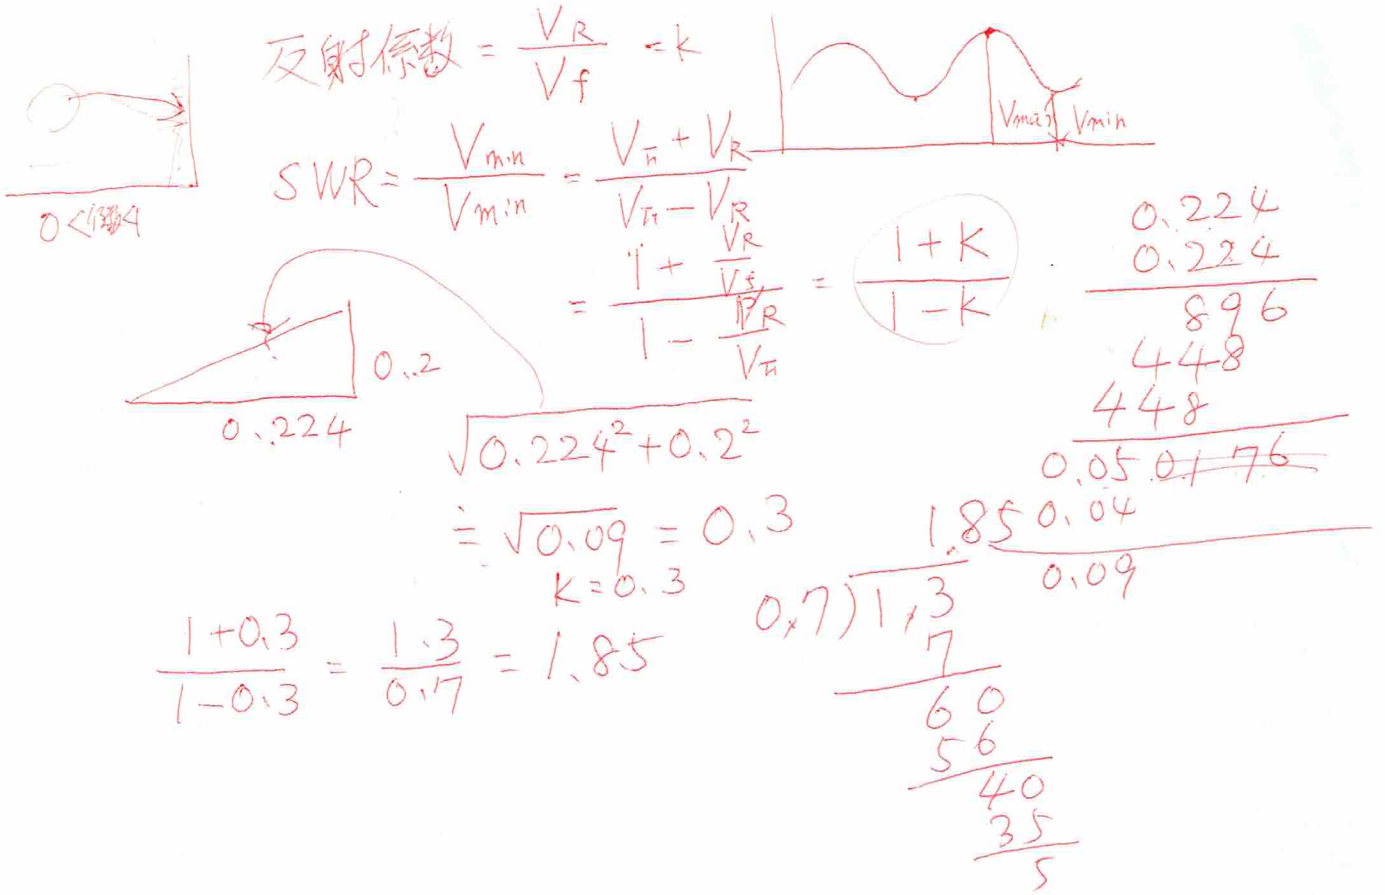 反射係数 = V_R / V_f = k
V_max V_min
SWR = V_min / V_min = V_f + V_R / V_f - V_R
= 1 + V_R/V_f / 1 - V_R/V_f = 1 + K / 1 - K
0.2
0.224
√0.224² + 0.2²
≒ √0.09 = 0.3
K = 0.3
1+0.3 / 1-0.3 = 1.3 / 0.7 = 1.85
0.224
0.224
896
448
448
0.050176
0.04
0.09
1.85
0.7)1.3
7
60
56
40
35
5